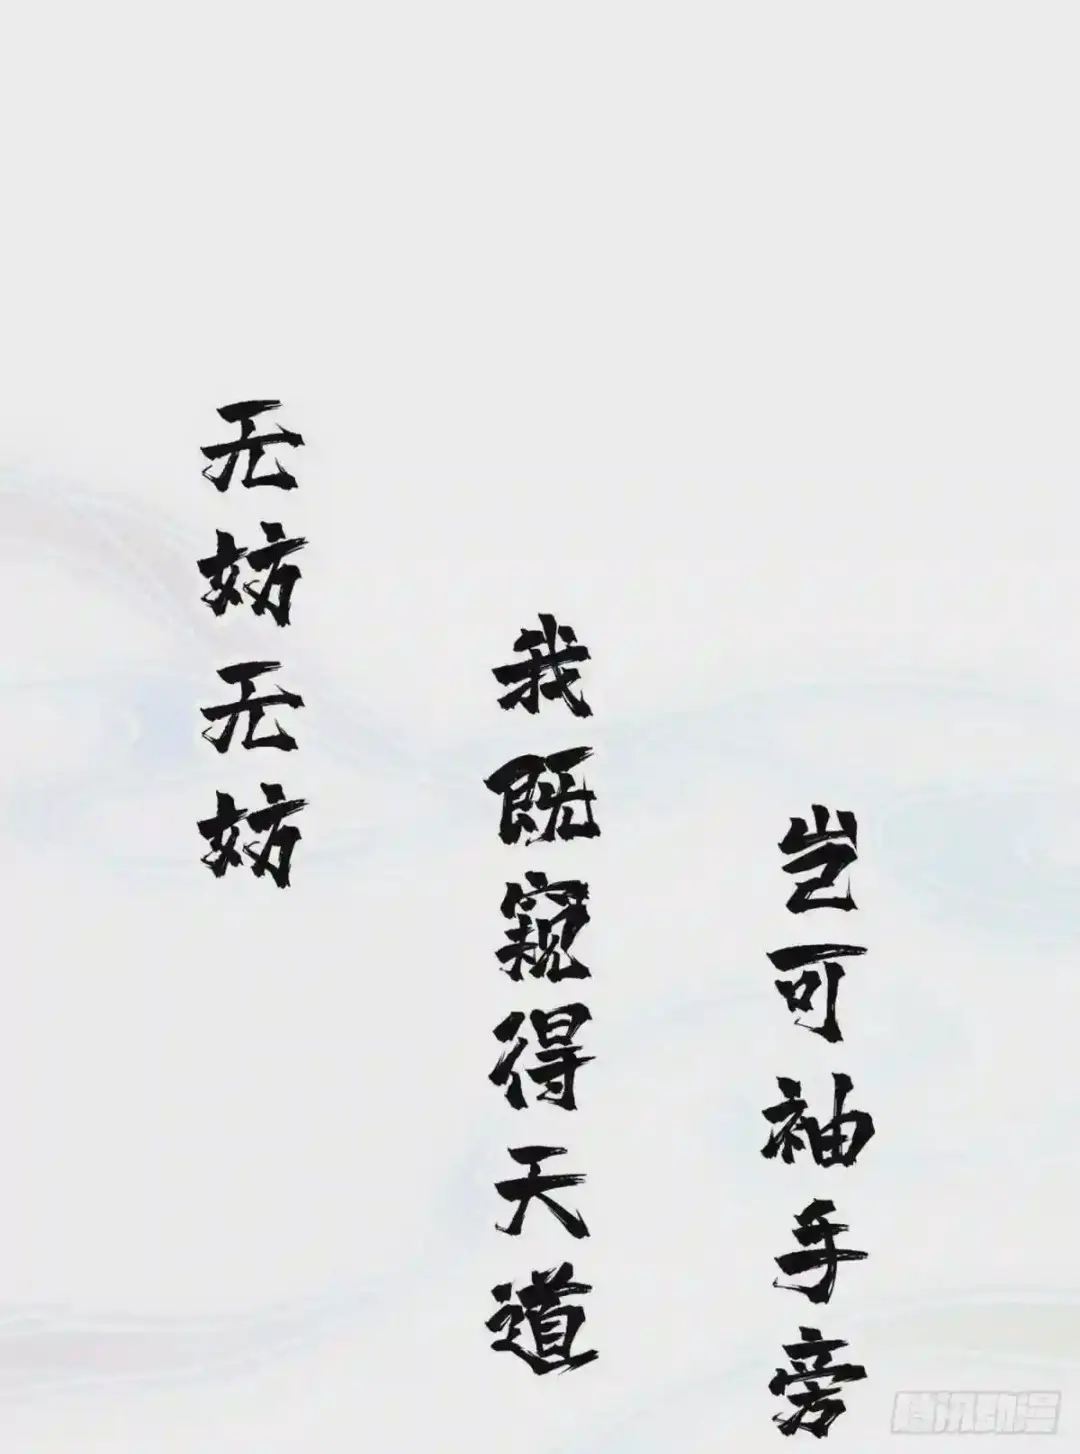 无妨无妨
我既窥得天道
岂可袖手旁
腾讯动漫